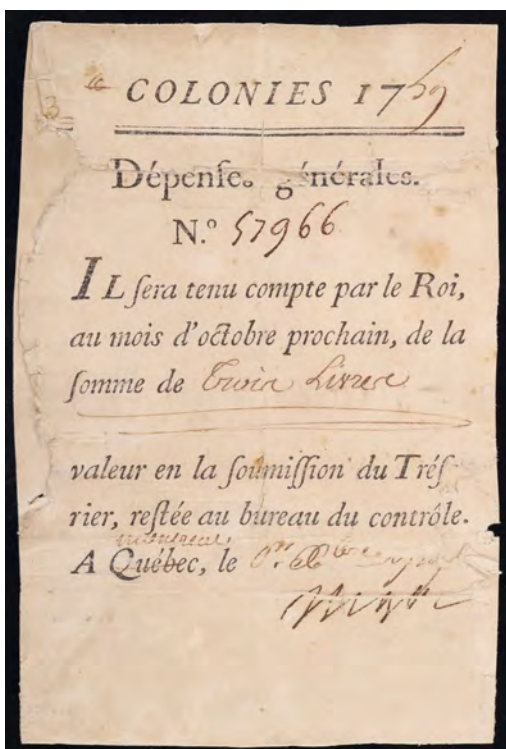 COLONIES 1759
3
Dépenſes générales.
N.º 57966
IL ſera tenu compte par le Roi,
au mois d'octobre prochain, de la
ſomme de Trois Livres
valeur en la ſoumiſſion du Tréſ
rier, reſtée au bureau du contrôle.
montreal
A Québec, le